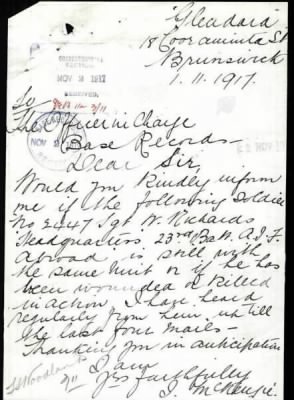 Gleadaid
18 Cooraminta St
Brunswick
1.11.1917.
NOV 2 1917
RECEIVED.
To
The Officer in Charge
Base Records—
Dear Sir,
Would you kindly inform
me if the following Soldier
No 2447 Sgt W. Richards
Headquarters 23rd Batt. A.I.F.
Abroad is still with
the same Unit or if he has
been wounded or killed
in action. I have heard
regularly from him up till
the last four mails—
Thanking you in anticipation
I am
Yrs faithfully
J. McKenzie.